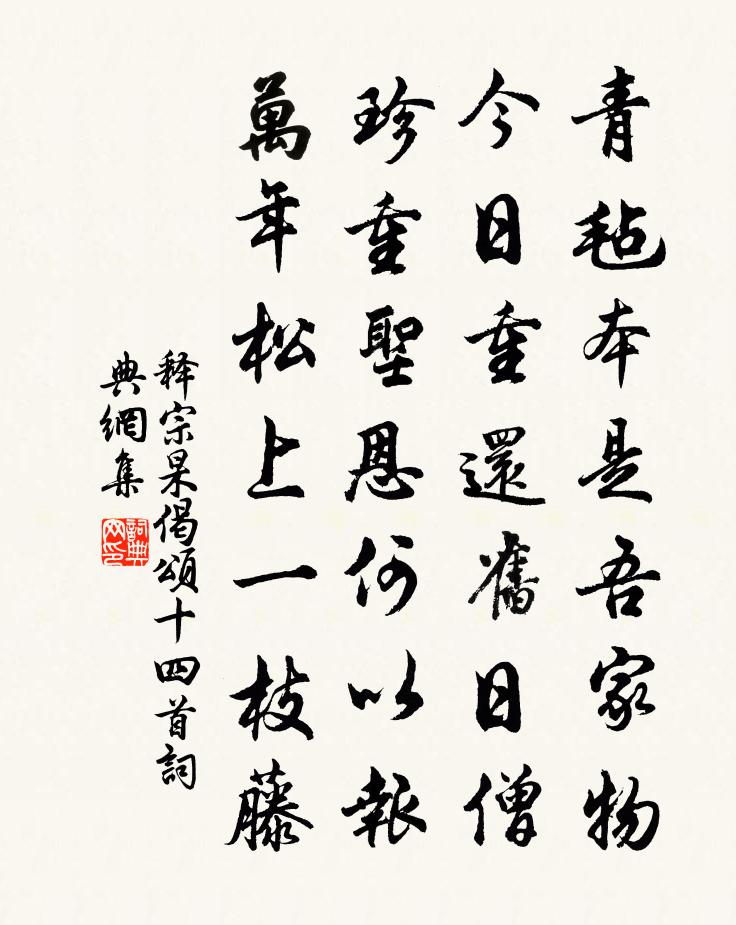 青毡本是吾家物
今日重還舊日僧
珍重聖恩何以報
萬年松上一枝藤
释宗杲偈頌十四首詞
典網集
詞典網印